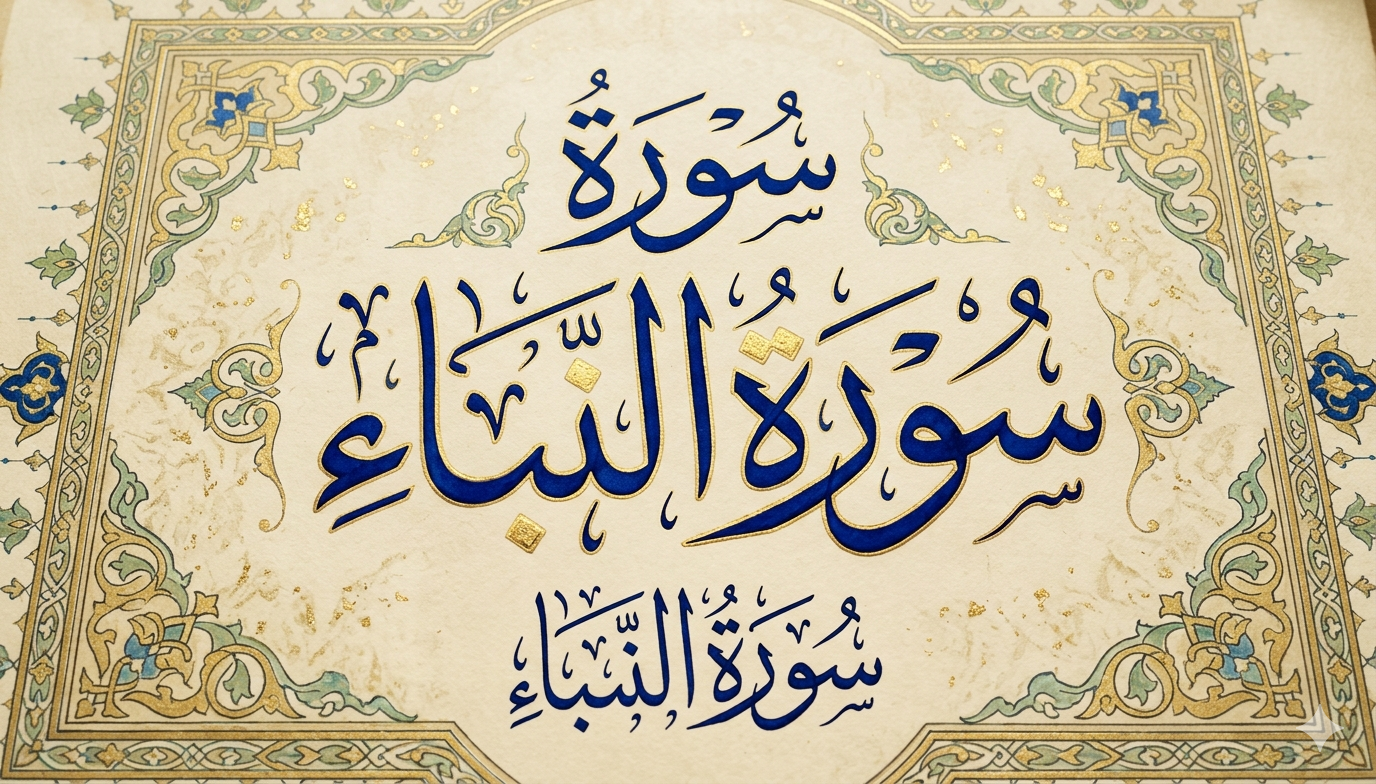 سُوْرَةُ
سُوْرَةُ النَّبَاءِ
سُوْرَةُ النَّبَاءِ